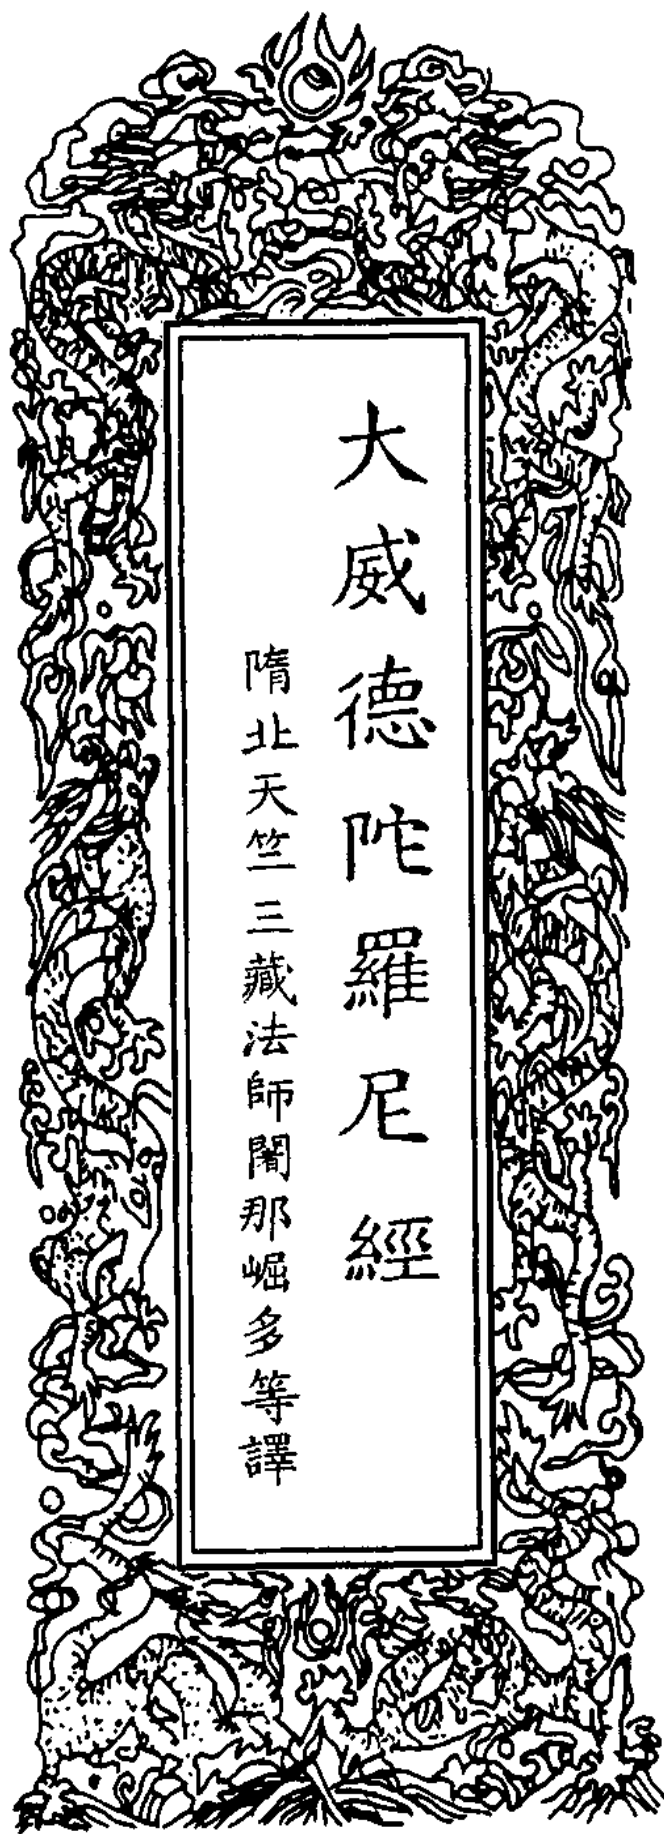 大威德陀羅尼經
隋北天竺三藏法師闍那崛多等譯